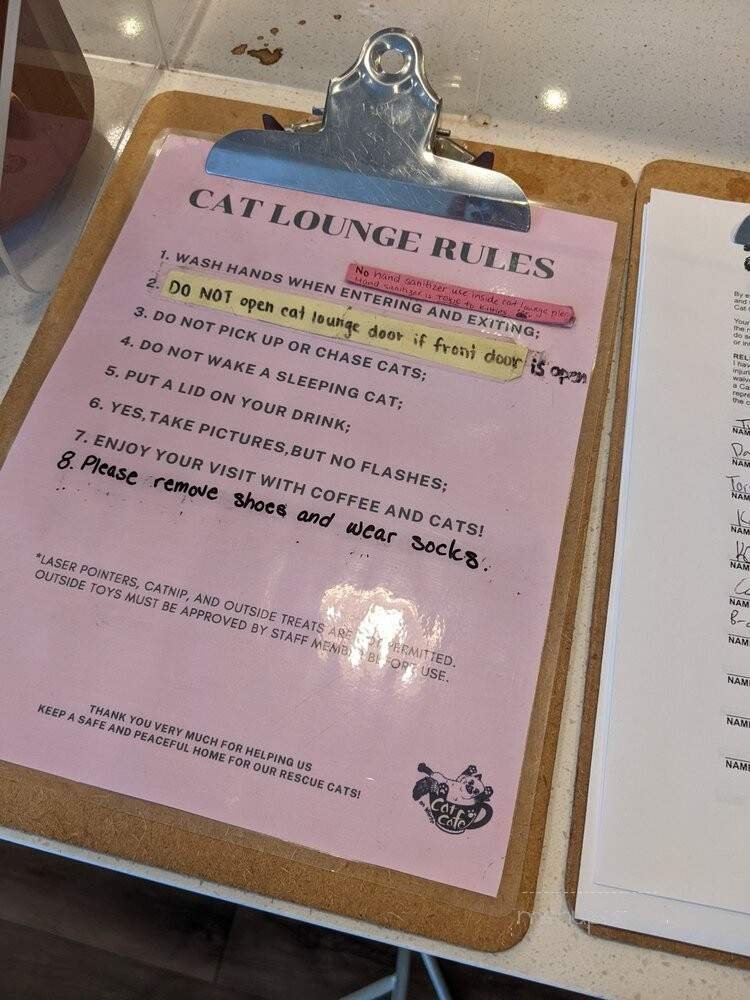 CAT LOUNGE RULES
No hand sanitizer use inside cat lounge
Hand sanitizer is toxic to kitties
1. WASH HANDS WHEN ENTERING AND EXITING;
2. DO NOT open cat lounge door if front door is open
3. DO NOT PICK UP OR CHASE CATS;
4. DO NOT WAKE A SLEEPING CAT;
5. PUT A LID ON YOUR DRINK;
6. YES,TAKE PICTURES,BUT NO FLASHES;
7. ENJOY YOUR VISIT WITH COFFEE AND CATS!
8. Please remove shoes and wear socks.
*LASER POINTERS, CATNIP, AND OUTSIDE TREATS ARE NOT PERMITTED.
OUTSIDE TOYS MUST BE APPROVED BY STAFF MEMBER BEFORE USE.
THANK YOU VERY MUCH FOR HELPING US
KEEP A SAFE AND PEACEFUL HOME FOR OUR RESCUE CATS!
Cat
Cafe
REL
I hav
injuri
a Ca
repre
the c
NAM
NAM
NAM
NAM
NAM
NAM
NAM
NAM
NAM
NAM